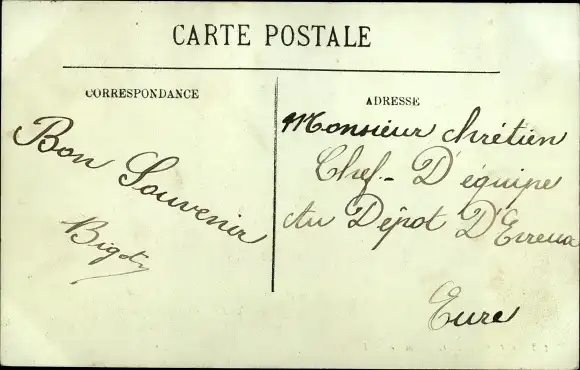 CARTE POSTALE
CORRESPONDANCE
Bon Souvenir
ADRESSE
Monsieur chrétien
Chef - D'équipe
Au Dépôt D'Evreux
Eure